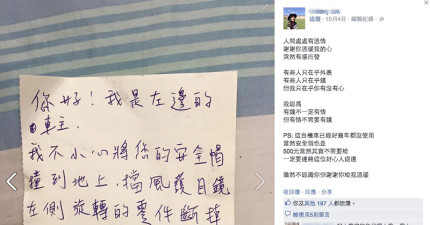 你好！我是左邊的
車主.
我不小心將您的安全帽
撞到地上，擋風護目鏡
左側旋轉的零件斷掉
追蹤 · 10月4日 ·
人間處處有溫情
謝謝你溫暖我的心
突然有感而發
有些人只在乎外表
有些人只在乎錢
但我只在乎你有沒有心
我認為
有錢不一定有情
但有情不需要有錢
PS: 這台機車已經好幾年都沒使用
當然安全帽也是
500元當然其實不需要給
一定要連絡這位好心人退還
雖然不認識你但謝謝你給我溫暖
收回讚 · 回應 · 分享
你及其他 187 人都說讚。
檢視另5則留言